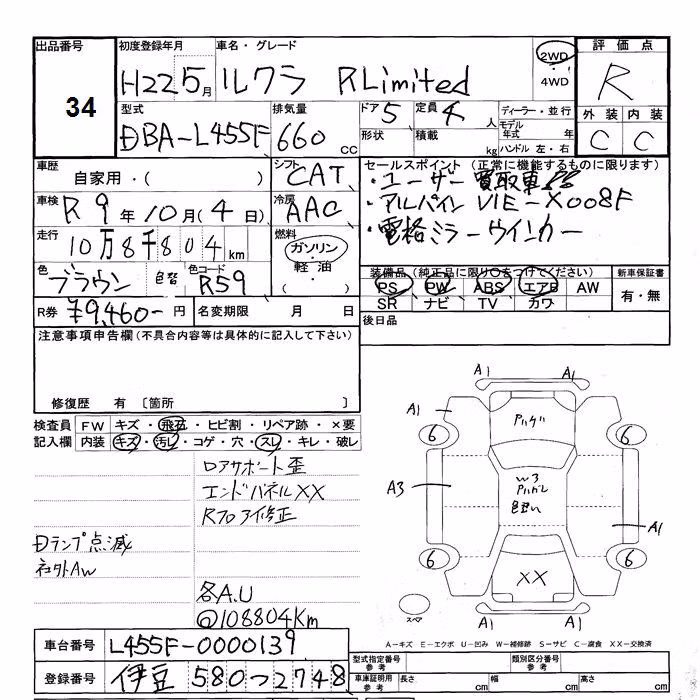 出品番号 初度登録年月 車名・グレード 2WD・4WD 評価点
34 H22 5月 ルクラ RLimited R
型式 排気量 ドア 定員 ディーラー・並行 外装 内装
DBA-L455F 660cc 5 4人 モデル年式 年 C C
形状 積載 kg ハンドル 左・右
車歴 シフト セールスポイント (正常に機能するものに限ります)
自家用・( ) CAT ・ユーザー買取車!!
車検 冷房 ・アルパイン VIE-X008F
R9年10月(4日) AAC ・電格ミラーウインカー
走行 燃料
10万8千804km ガソリン・軽油・( )
色 色替 色コード 装備品(純正品に限り○をつけてください) 新車保証書
ブラウン R59 PS PW ABS エアB AW 有・無
R券 ¥9,460-円 名変期限 月 日 SR ナビ TV カワ
後日品
注意事項申告欄(不具合内容等は具体的に記入して下さい)
修復歴 有 〔箇所 〕
検査員 FW キズ・飛石・ヒビ割・リペア跡・×要
記入欄 内装 キズ・汚レ・コゲ・穴・スレ・キレ・破レ
ロアサポート歪
エンドパネルXX
Rフロア修正
Dランプ点滅
社外AW
各A.U
@108804Km
A1
A1 A1
6 6
A3 W3
色違い
A1
6 6
XX
スペア
A1 A1
A-キズ E-エクボ U-凹み W-補修跡 S-サビ C-腐食 XX-交換済
車台番号 L455F-0000139
登録番号 伊豆 580 2748
型式指定番号 参考 類別区分番号 参考
車庫証明用 参考 長さ cm 幅 cm 高さ cm